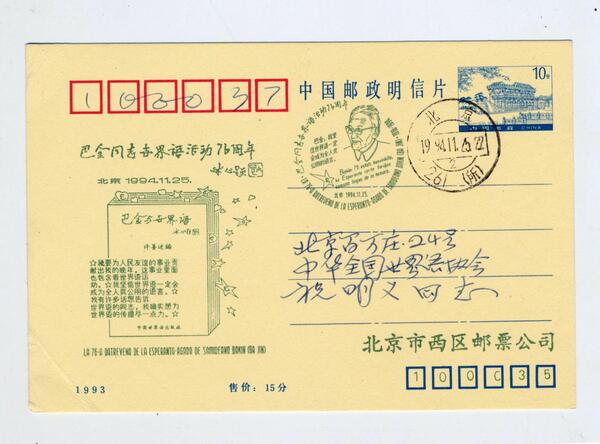 100037
中国邮政明信片
10分
中国邮政 CHINA
巴金同志世界语活动76周年
北京 1994.11.25.
巴金与世界语
许善述编
☆我要为人民友谊的事业贡
献出我的晚年，这事业里面
也包含着世界语活
动。☆我坚信世界语一定会
成为全人类公用的语言。☆
我有许多话想告诉
世界语的同志，我确实想为
世界语的传播尽一点力。☆
中国世界语出版社
LA 76-A DATREVENO DE LA ESPERANTO-AGADO DE SAMIDEANO BAKIN (BA JIN)
巴金同志世界语活动76周年
巴金：我坚
信世界语一定
会成为全人类
公用的语言。
北京 1994.11.25.
LA 76-A DATREVENO DE LA ESPERANTO-AGADO DE SAMIDEANO BAKIN (BA JIN)
北京
1994.11.25.22
2
261(所)
北京百万庄24号
中华全国世界语协会
祝明义同志
北京市西区邮票公司
100035
1993
售价：15分